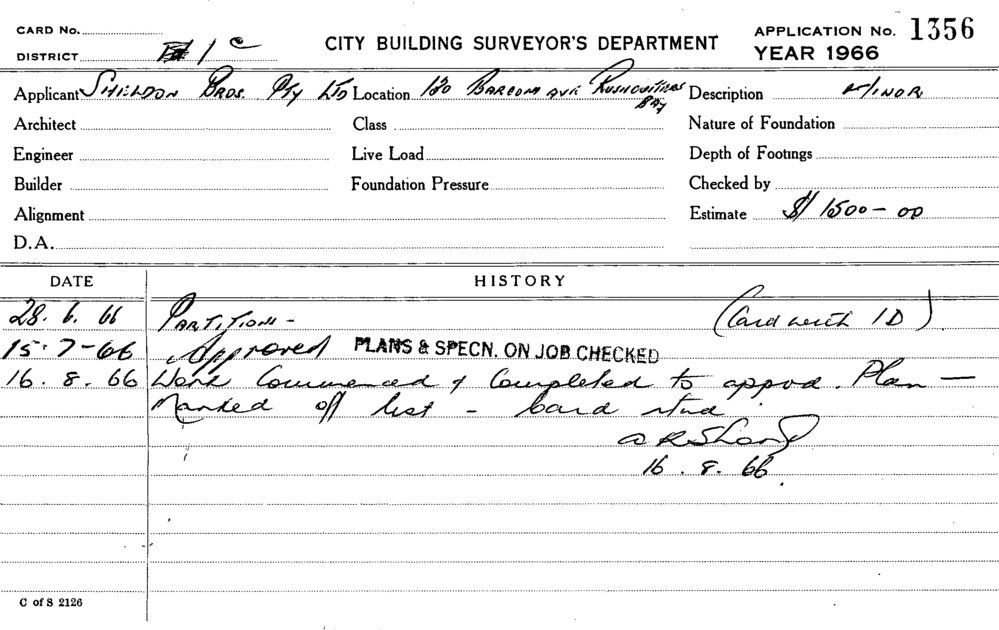 CARD No.
DISTRICT 1 c
CITY BUILDING SURVEYOR'S DEPARTMENT
APPLICATION No. 1356
YEAR 1966
Applicant Sheldon Bros. Pty Ltd Location 130 Barcom ave Rushcutters Bay Description Minor
Architect Class Nature of Foundation
Engineer Live Load Depth of Footings
Builder Foundation Pressure Checked by
Alignment Estimate $1500-00
D.A.
DATE HISTORY
28. 6. 66 Partitions - (Card with 1D)
15-7-66 Approved PLANS & SPECN. ON JOB CHECKED
16. 8. 66 Work Commenced & Completed to appvd. Plan -
Marked off list - card
16. 8. 66.
C of S 2126